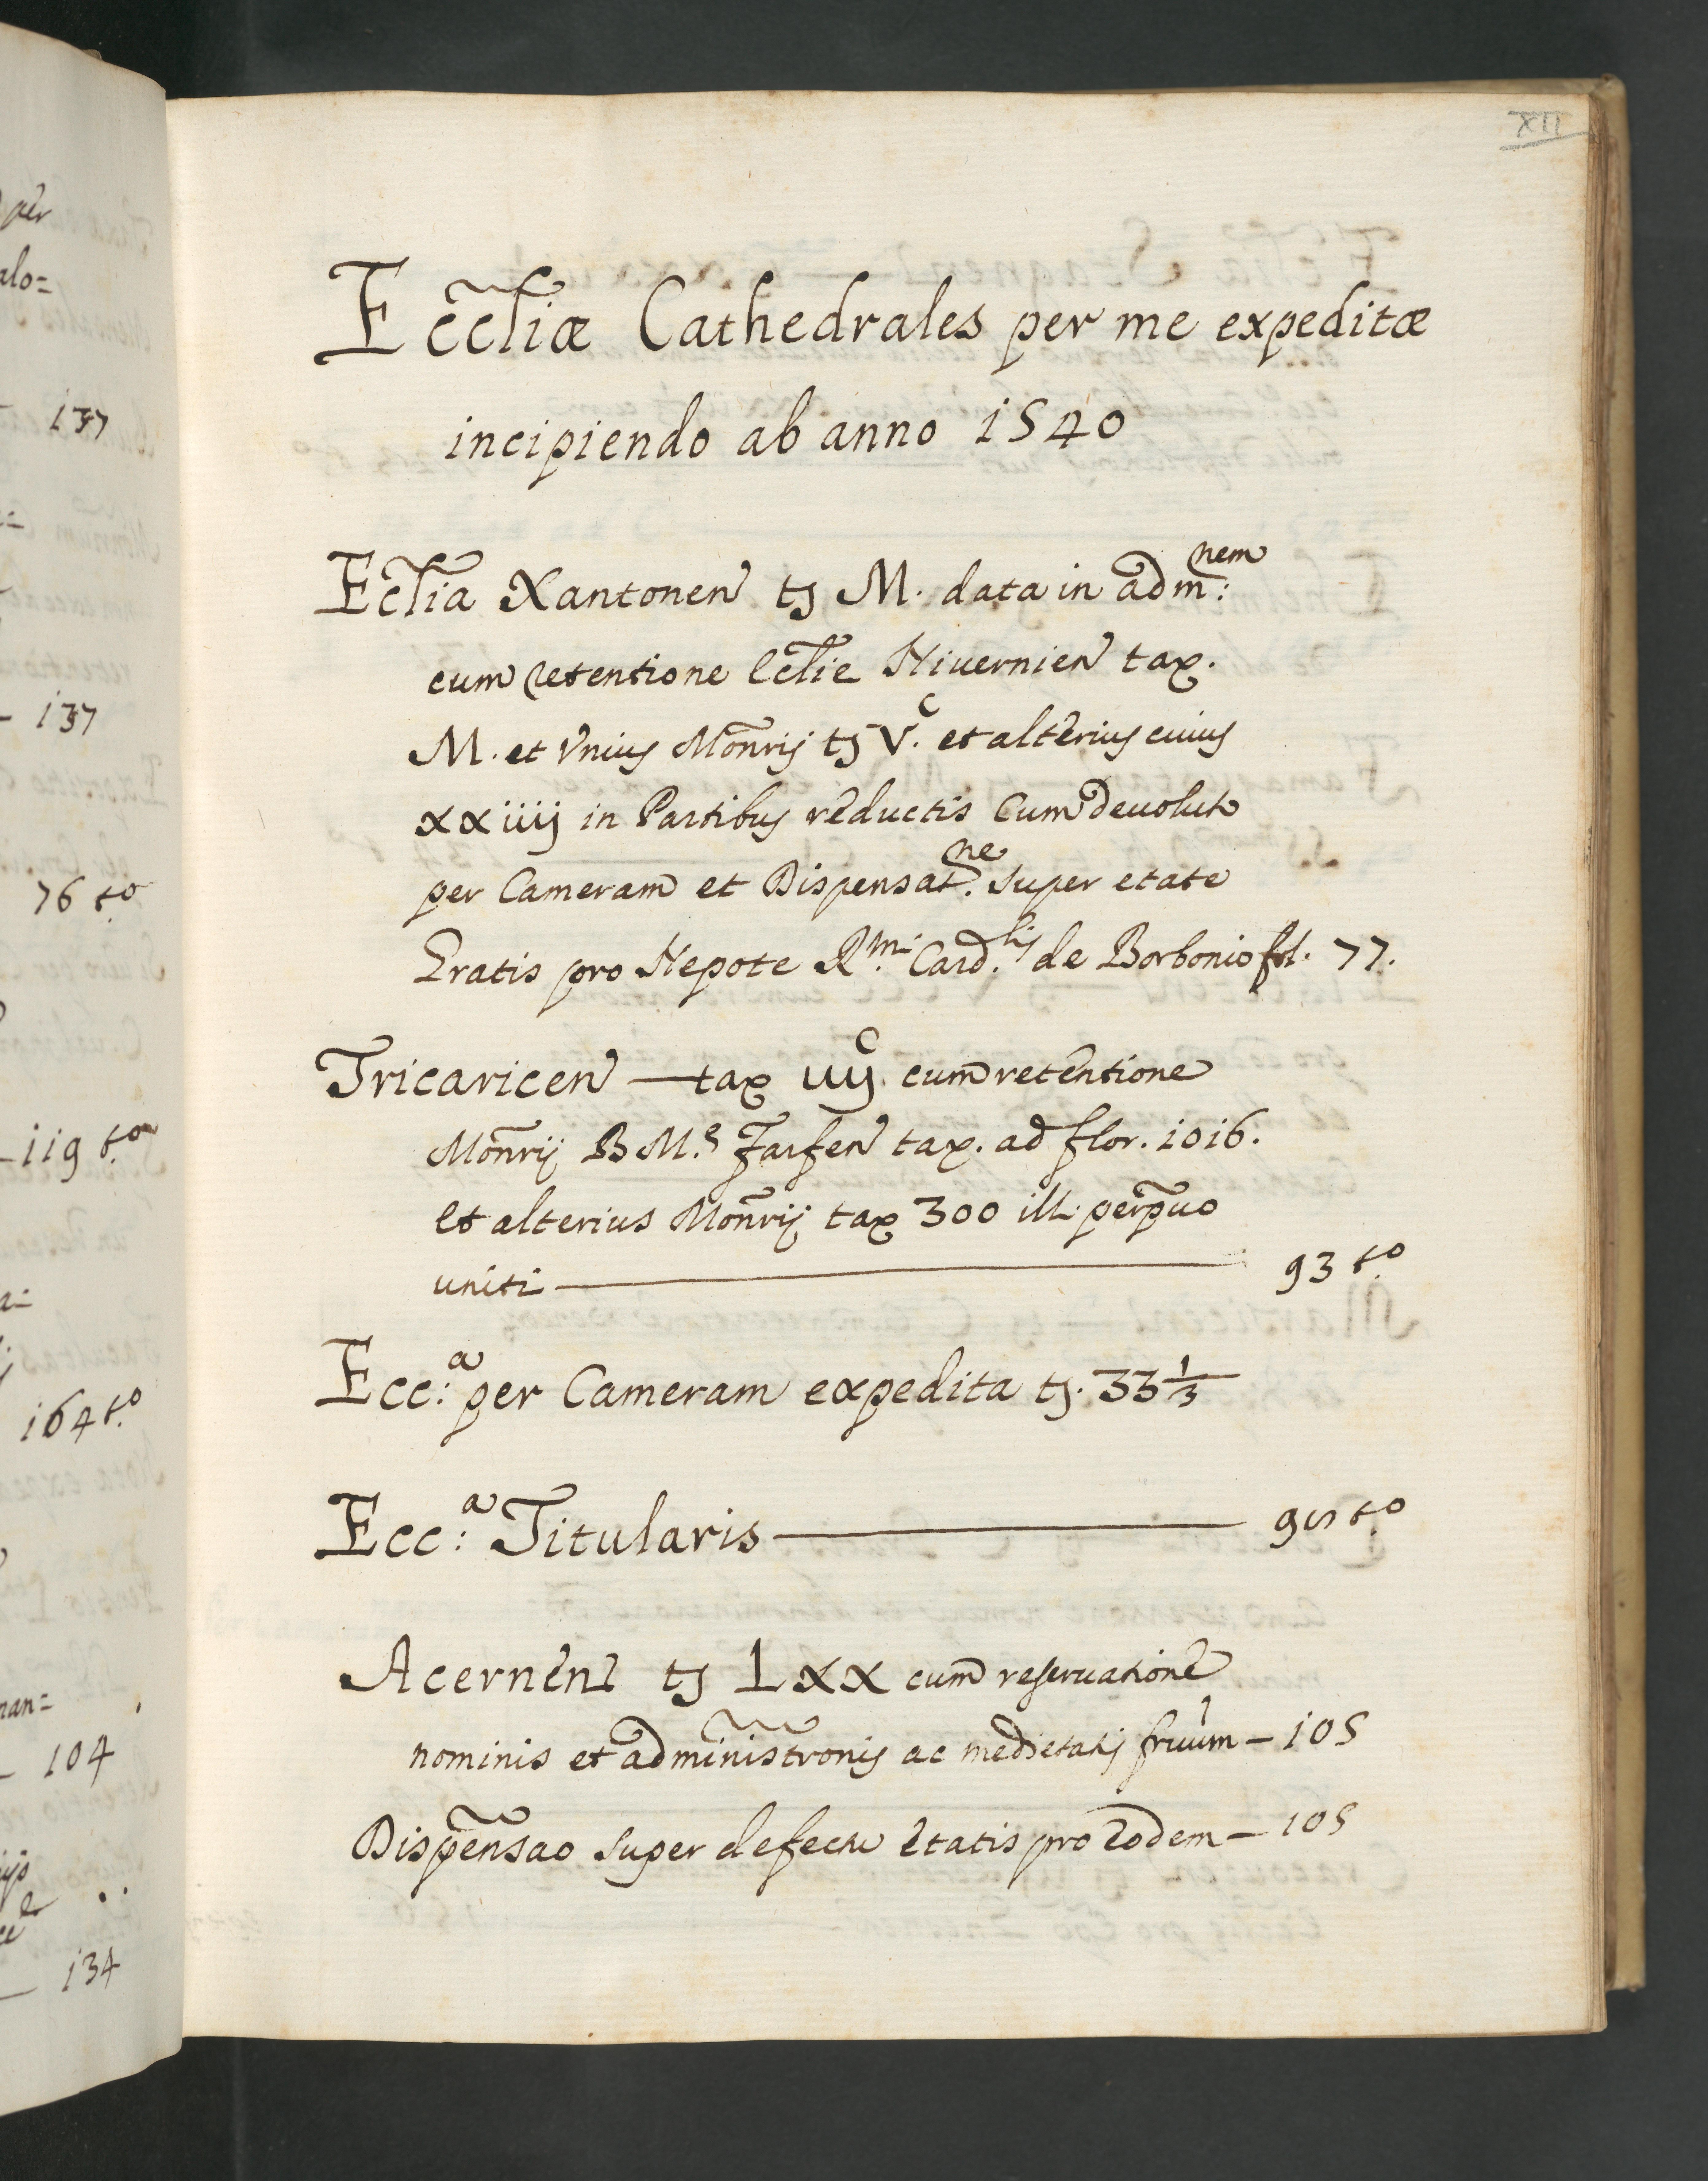 XII
Eccliæ Cathedrales per me expeditæ
incipiendo ab anno 1540
Ecclia Xantonen tz M. data in adm:nem
cum retentione Ecclie Niuernien tax.
M. et vnius Monrij tz V.c et alterius cuius
xxiiij in Partibus reductis cum deuolut
per Cameram et Dispensat.ne super etate
Gratis pro Nepote R.mi Card.lis de Borbonio fol. 77.
Tricaricen — tax iiij.c cum retentione
Monrij B M.e Farfen tax. ad flor. 1016.
et alterius Monrij tax 300 ill. perpuo
uniti — 93 t.o
Ecc:a per Cameram expedita tz. 33 1/3
Ecc:a Titularis — 95 t.o
Acernen tz Lxx cum reseruatione
nominis et administronis ac medietatis fruum — 105
Dispensao super defectu etatis pro eodem — 105
per
alo=
137
137
76 t.o
119 t.o
164 t.o
nan=
104
134